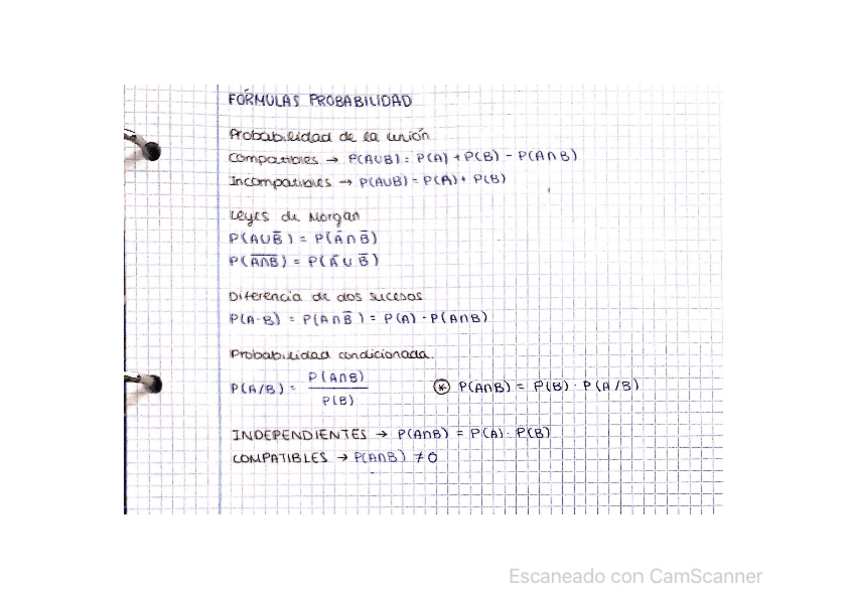 FÓRMULAS PROBABILIDAD
Probabilidad de la unión
Compatibles → P(A∪B) = P(A) + P(B) - P(A∩B)
Incompatibles → P(A∪B) = P(A) + P(B)
Leyes de Morgan
P(A∪B̅) = P(A̅∩B̅)
P(A̅∩̅B̅) = P(A̅∪B̅)
Diferencia de dos sucesos
P(A-B) = P(A∩B̅) = P(A) - P(A∩B)
Probabilidad condicionada.
P(A/B) = P(A∩B) / P(B) ⊛ P(A∩B) = P(B) · P(A/B)
INDEPENDIENTES → P(A∩B) = P(A) · P(B)
COMPATIBLES → P(A∩B) ≠ 0
Escaneado con CamScanner